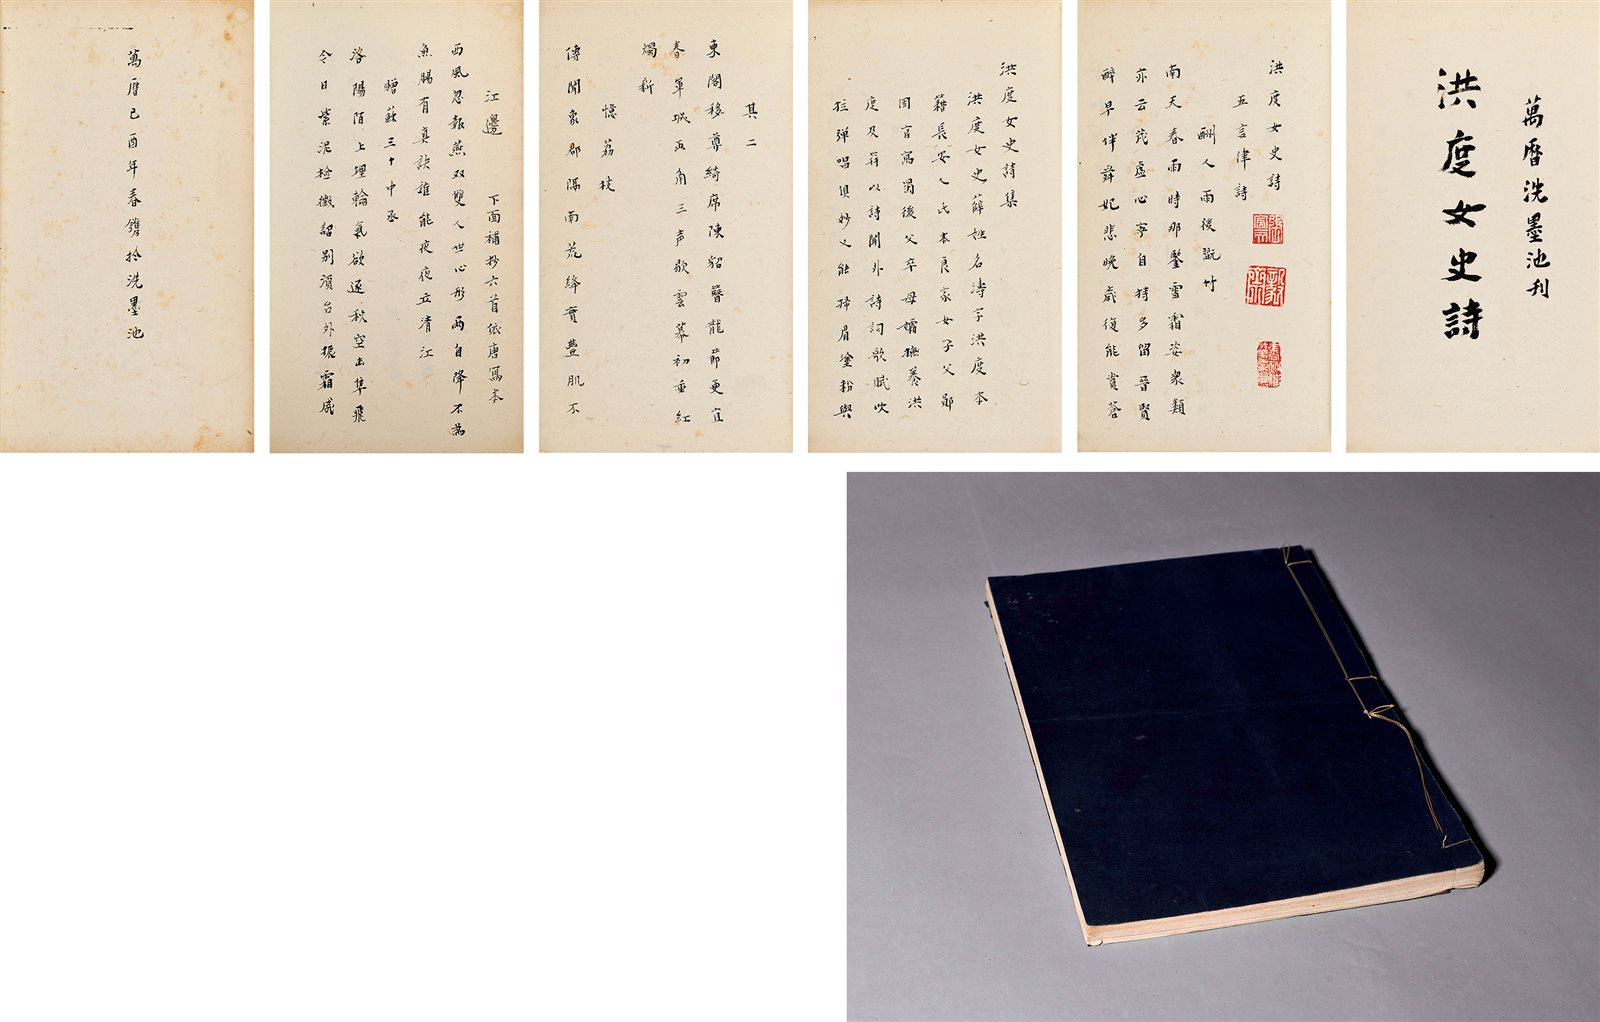 萬曆洗墨池刊
洪度女史詩
洪度女史詩
五言律詩
酬人雨後翫竹
南天春雨時那鑒雪霜姿衆類
亦云茂虛心寧自持多留晉賢
醉早伴舜妃悲晚歲復能賞蒼
洪度女史詩集
洪度女史薛姓名濤字洪度本
籍長安人氏本良家女子父鄖
因官寓蜀後父卒母孀撫養洪
度及筓以詩聞外詩詞歌賦吹
拉彈唱俱妙又能掃眉塗粉與
其二
東閣移尊綺席陳貂簪龍節更宜
春軍城画角三声歇雲幕初垂紅
燭新
憶荔枝
傳聞象郡隔南荒絳實豐肌不
江邊
下面補抄六首依唐寫本
西風忽報燕双雙人世心形兩自降不為
魚腸有真訣誰能夜夜立清江
贈蘇三十中丞
洛陽陌上埋輪氣欲逐秋空击隼飛
今日紫泥检徴詔别須台外振霜威
萬曆己酉年春鐫扵洗墨池